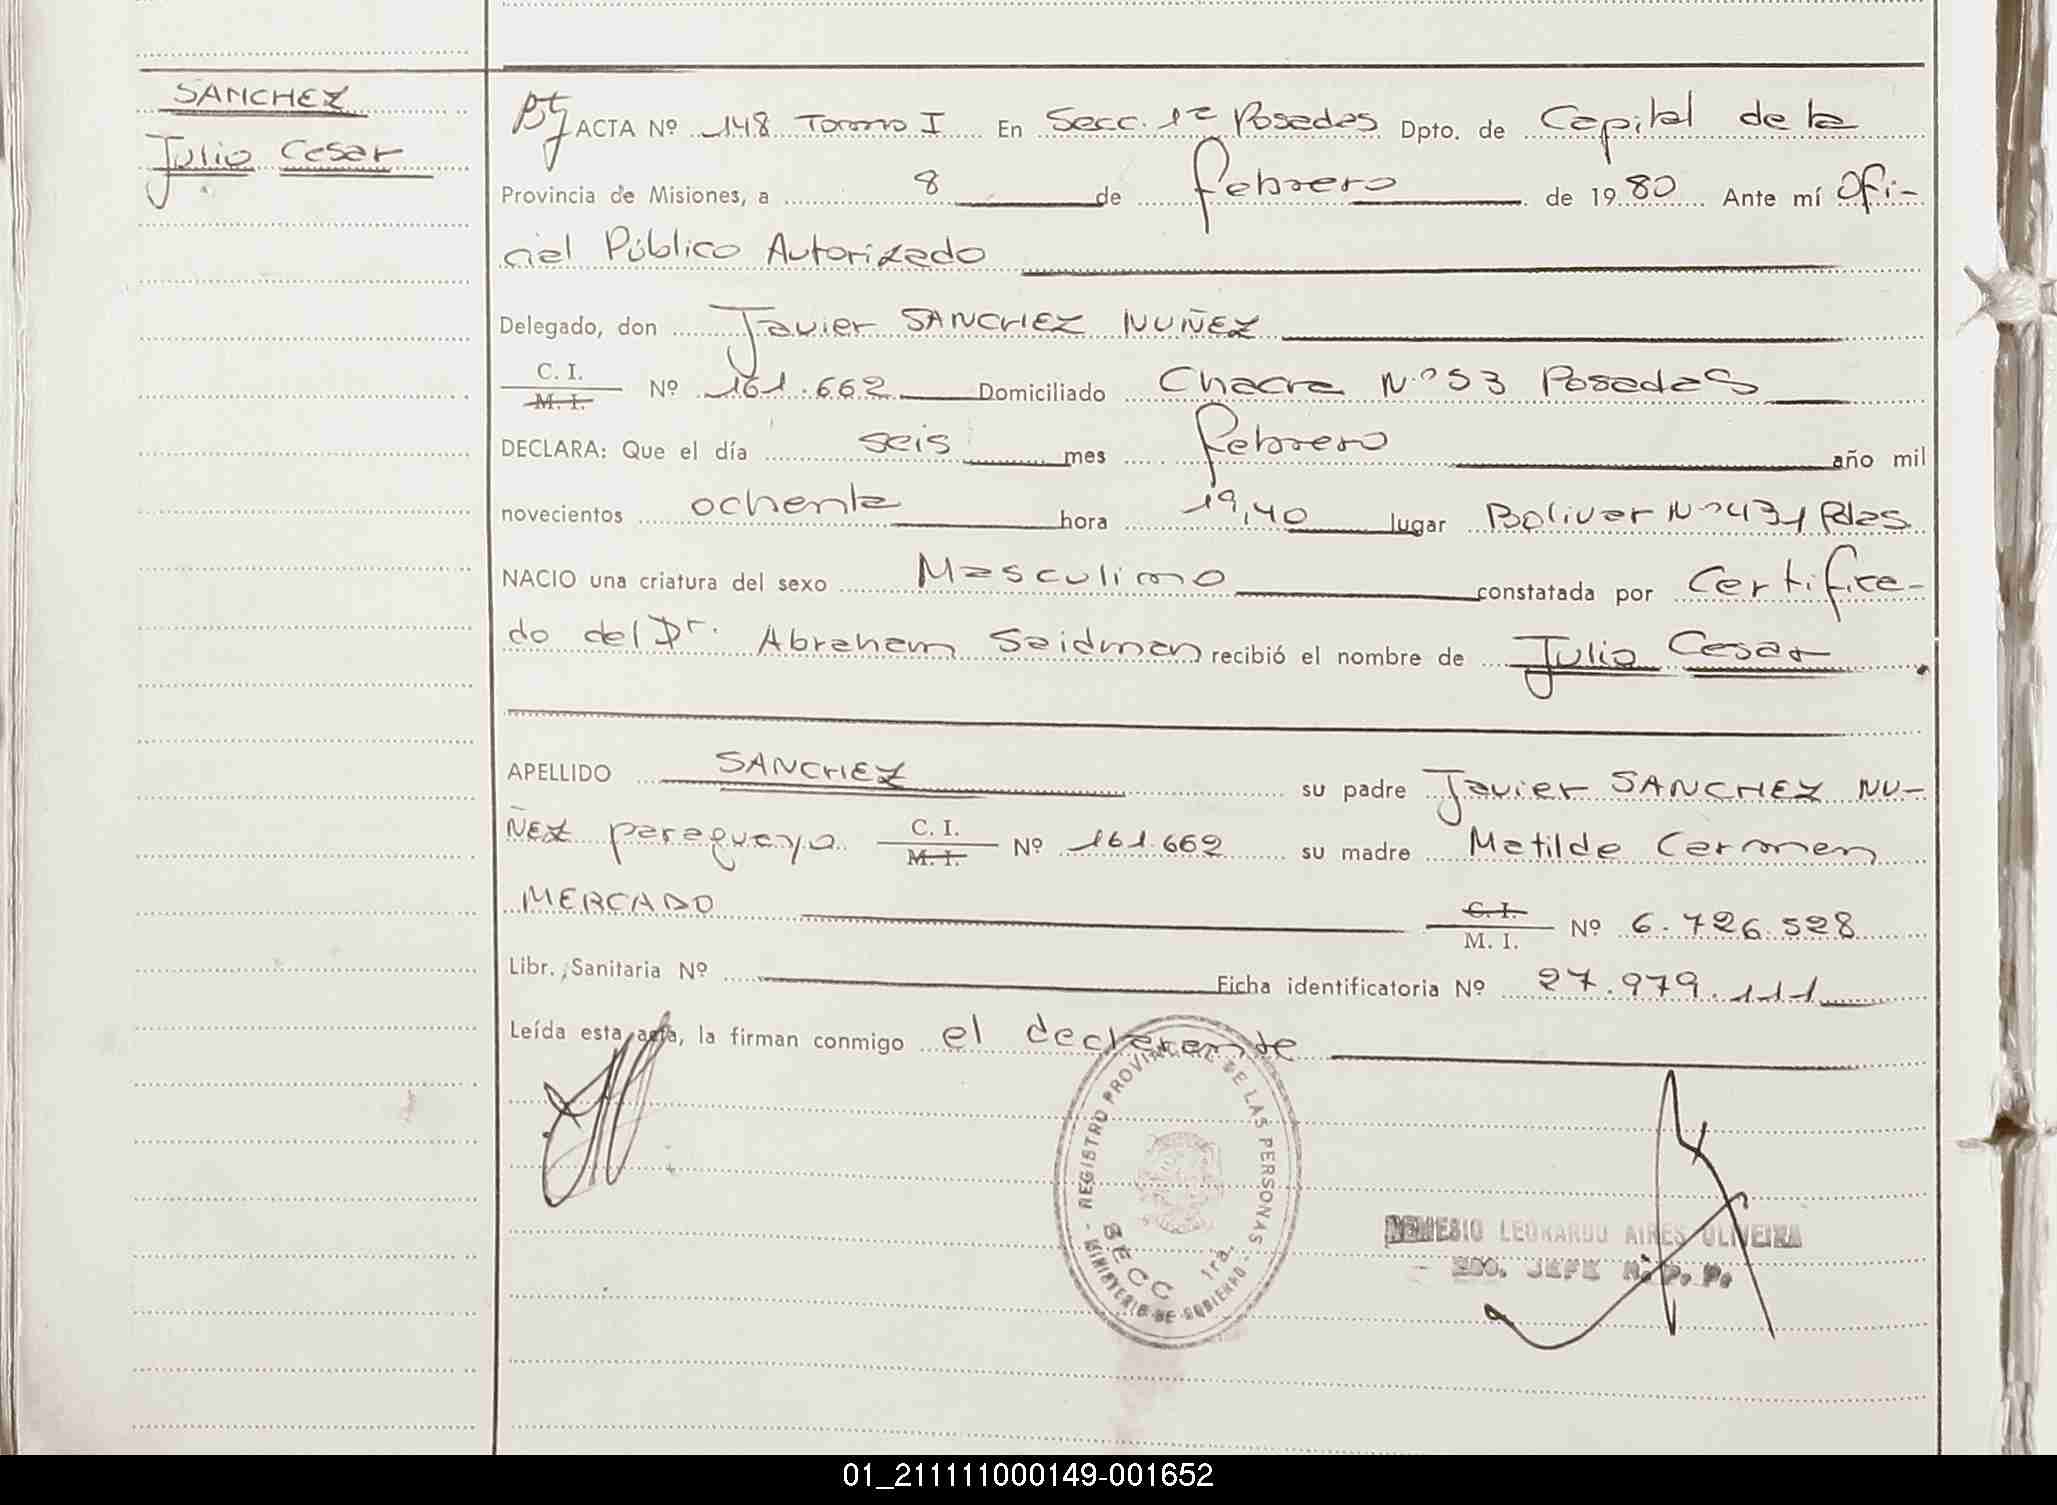 SANCHEZ
Julio Cesar
ACTA Nº 148 Tomo I En Secc. 1ª Posadas Dpto. de Capital de la
Provincia de Misiones, a 8 de febrero de 1980 Ante mí Ofi-
cial Público Autorizado
Delegado, don Javier SANCHEZ NUÑEZ
C. I.
M. I. Nº 161.662 Domiciliado Chacra Nº 53 Posadas
DECLARA: Que el día seis mes febrero año mil
novecientos ochenta hora 19,40 lugar Bolivar Nº 431 Pdas
NACIO una criatura del sexo Masculino constatada por Certifica-
do del Dr. Abraham Seidman recibió el nombre de Julio Cesar
APELLIDO SANCHEZ su padre Javier SANCHEZ NU-
ÑEZ paraguayo C. I. M. I. Nº 161.662 su madre Matilde Carmen
MERCADO C. I. M. I. Nº 6.726.528
Libr. Sanitaria Nº Ficha identificatoria Nº 27.979.111
Leída esta acta, la firman conmigo el declarante
REGISTRO PROVINCIAL DE LAS PERSONAS
- MINISTERIO DE GOBIERNO -
SECC 1ra.
NEMESIO LEONARDO AIRES OLIVEIRA
JEFE R. P. P.
01_211111000149-001652